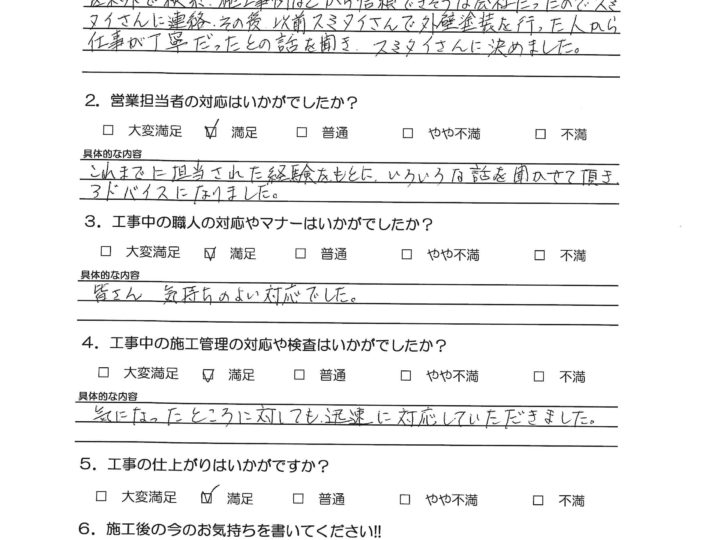 施工事例などから信頼できそうな会社だったのでスミ
タイさんに連絡、その後、以前スミタイさんで外壁塗装を行った人から
仕事が丁寧だったとの話を聞き、スミタイさんに決めました。
2．営業担当者の対応はいかがでしたか？
□ 大変満足 ☑ 満足 □ 普通 □ やや不満 □ 不満
具体的な内容
これまでに担当された経験をもとに、いろいろな話を聞かせて頂き、
アドバイスになりました。
3．工事中の職人の対応やマナーはいかがでしたか？
□ 大変満足 ☑ 満足 □ 普通 □ やや不満 □ 不満
具体的な内容
皆さん 気持ちのよい対応でした。
4．工事中の施工管理の対応や検査はいかがでしたか？
□ 大変満足 ☑ 満足 □ 普通 □ やや不満 □ 不満
具体的な内容
気になったところに対しても、迅速に対応していただきました。
5．工事の仕上がりはいかがですか？
□ 大変満足 ☑ 満足 □ 普通 □ やや不満 □ 不満
6．施工後の今のお気持ちを書いてください!!